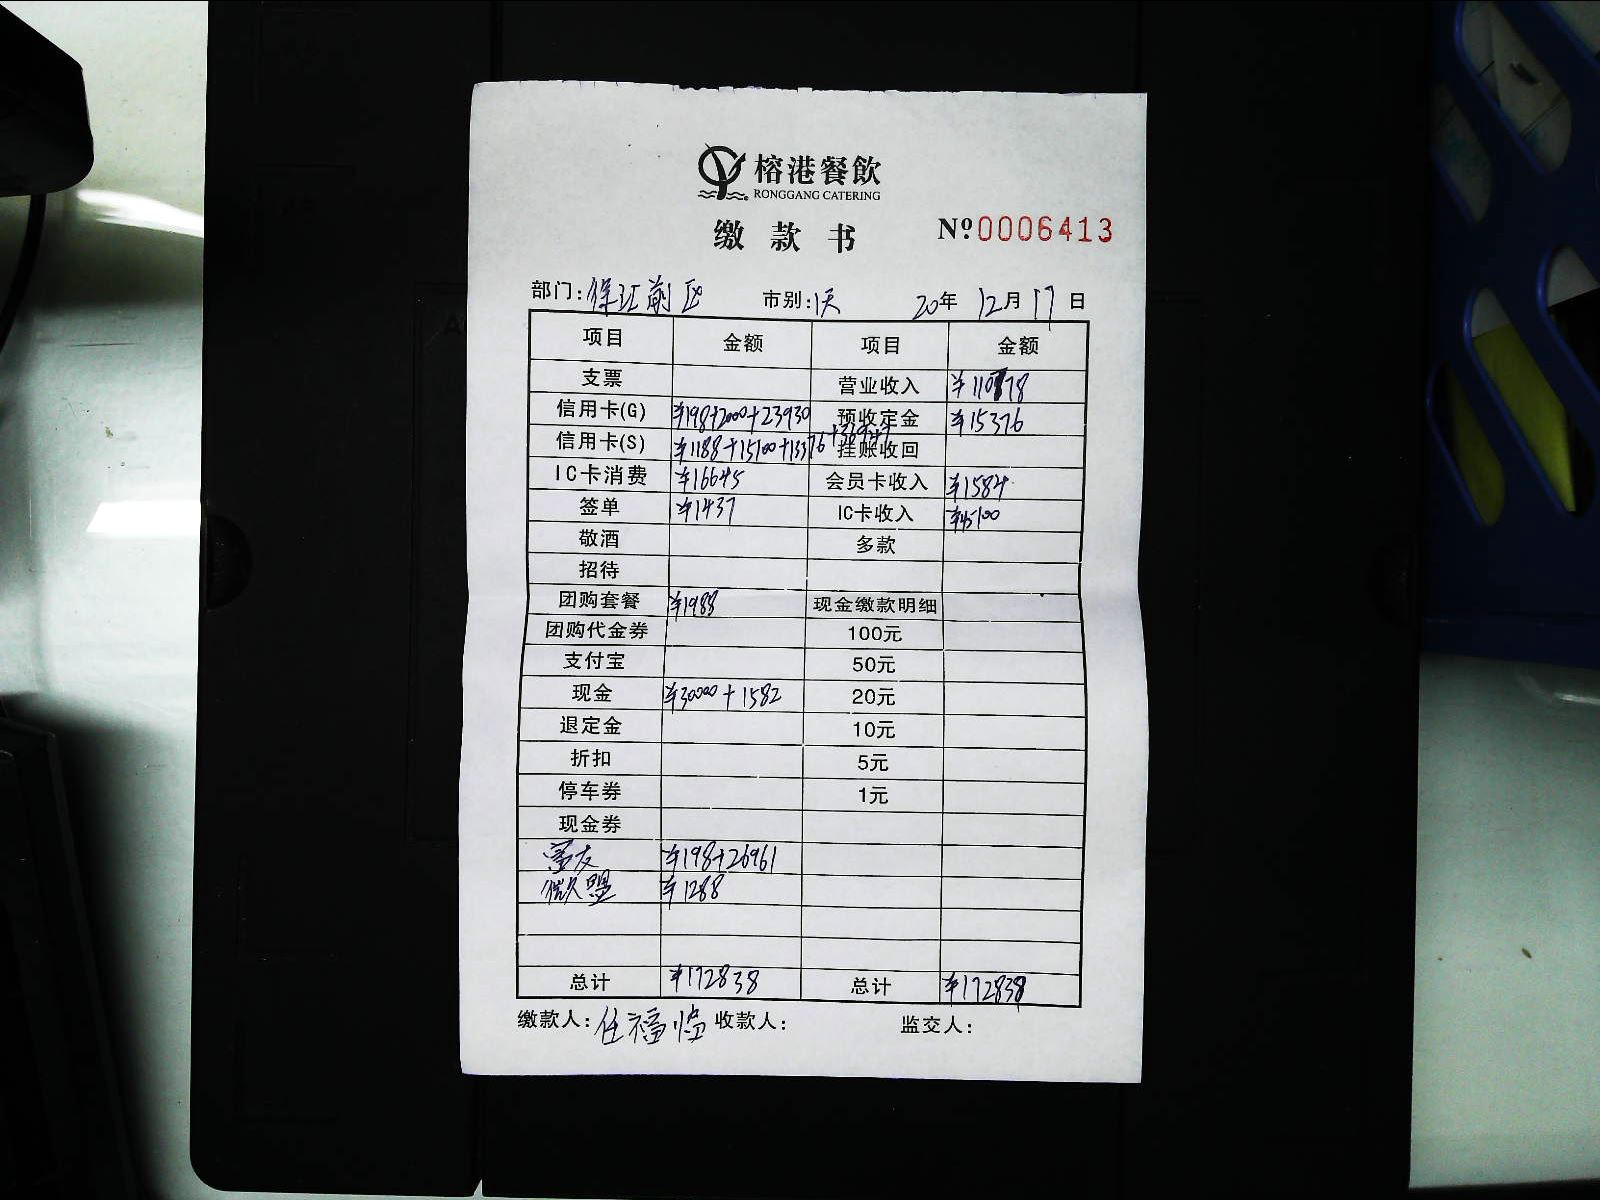 榕港餐飲
RONGGANG CATERING
缴款书 Nº0006413
部门: 前区 市别:1天 20年 12月 17日
项目 金额 项目 金额
支票 营业收入 ¥110778
信用卡(G) ¥198+2000+23930 预收定金 ¥15376
信用卡(S) ¥1188+15100+13376+36947 挂账收回
IC卡消费 ¥16645 会员卡收入 ¥1584
签单 ¥1437 IC卡收入 ¥45100
敬酒 多款
招待
团购套餐 ¥1988 现金缴款明细
团购代金券 100元
支付宝 50元
现金 ¥30000+1582 20元
退定金 10元
折扣 5元
停车券 1元
现金券
富友 ¥198+26961
¥1288
总计 ¥172838 总计 ¥172838
缴款人:任福临 收款人: 监交人: